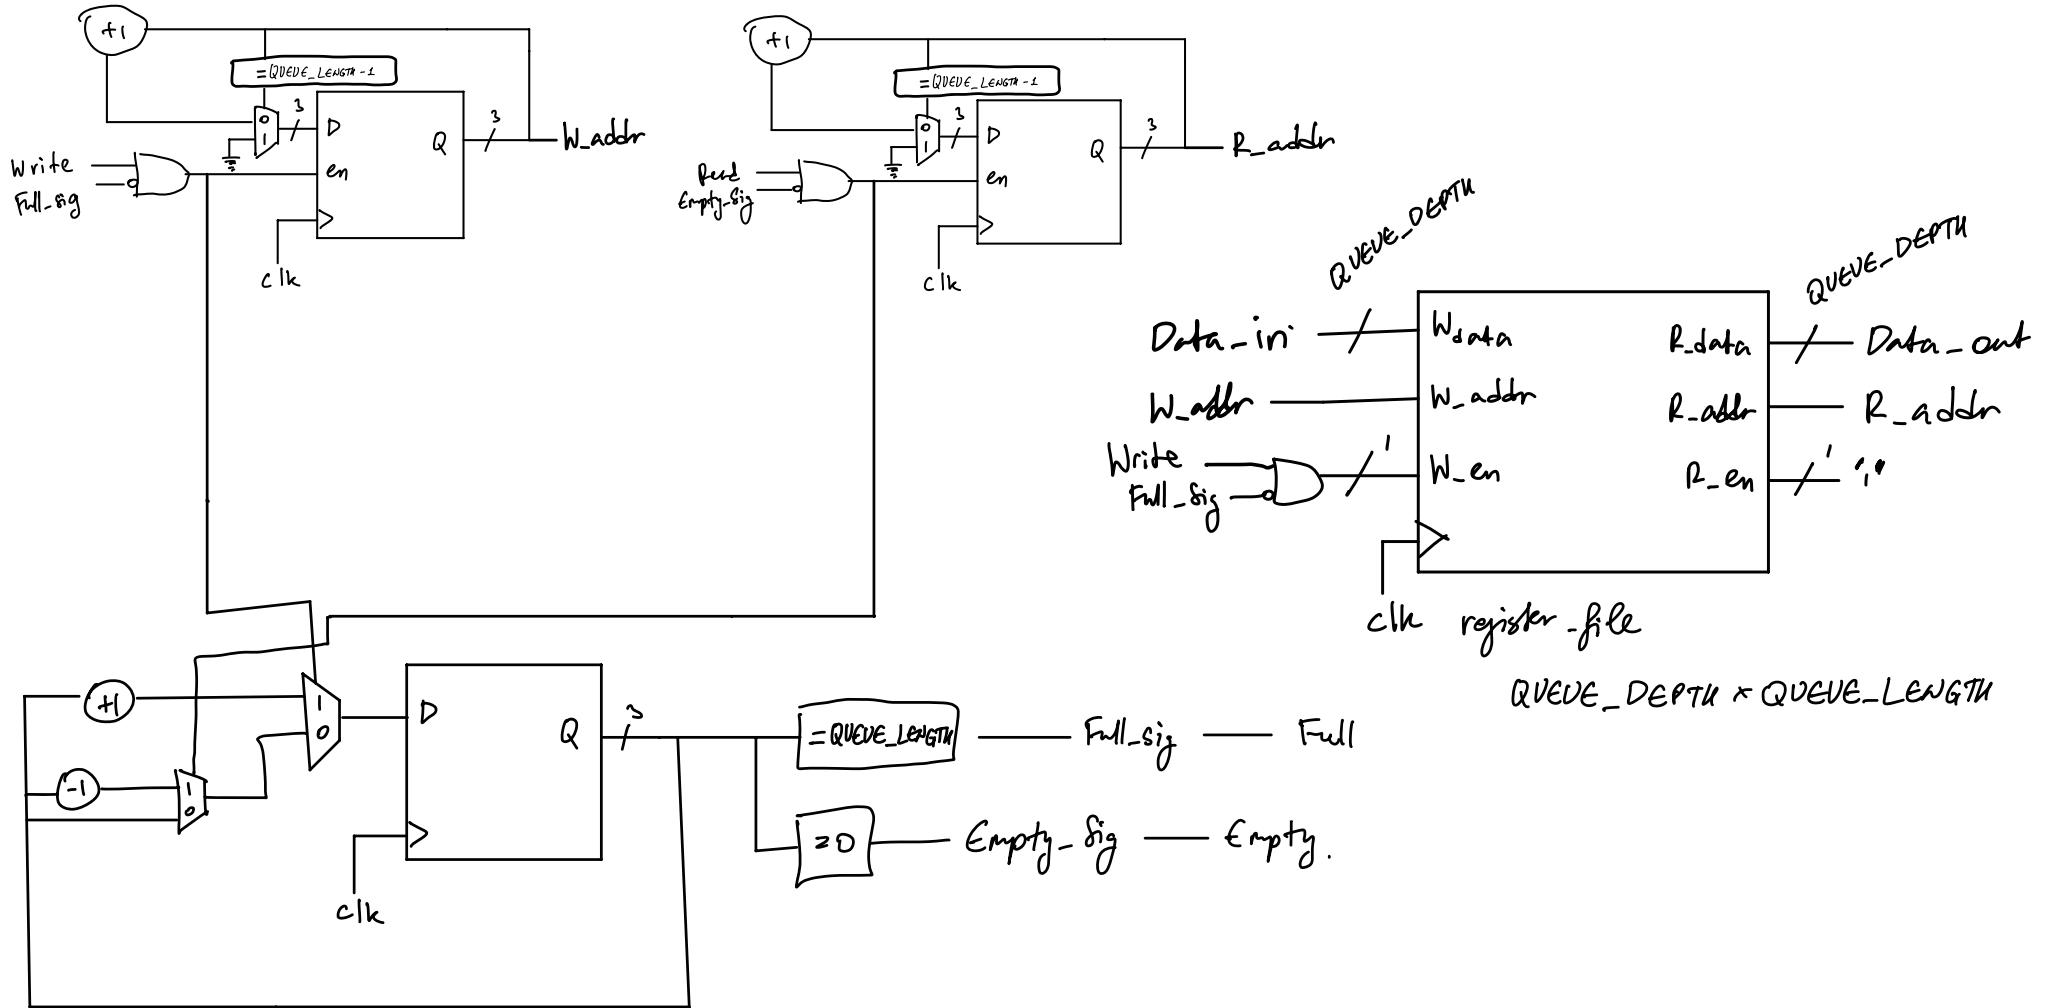 +1
= QUEUE_LENGTH - 1
0
1
3
D
Q
en
3
W_addr
Write
Full_sig
clk
+1
= QUEUE_LENGTH - 1
0
1
3
D
Q
en
3
R_addr
Read
Empty_Sig
clk
QUEUE_DEPTH
QUEUE_DEPTH
Data_in
W_data
R_data
Data_out
W_addr
W_addr
R_addr
R_addr
Write
Full_Sig
1
W_en
R_en
1
'1'
clk
register_file
QUEUE_DEPTH × QUEUE_LENGTH
+1
1
0
-1
1
0
D
Q
3
clk
= QUEUE_LENGTH
Full_sig
Full
= 0
Empty_Sig
Empty.